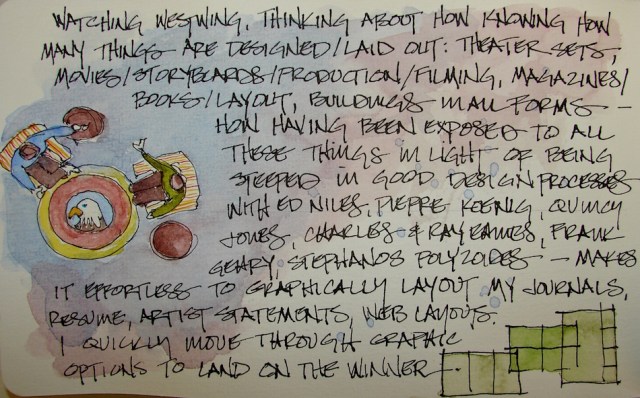 WATCHING WESTWING, THINKING ABOUT HOW KNOWING HOW
MANY THINGS ARE DESIGNED/LAID OUT: THEATER SETS,
MOVIES/STORYBOARDS/PRODUCTION/FILMING, MAGAZINES/
BOOKS/LAYOUT, BUILDINGS IN ALL FORMS —
HOW HAVING BEEN EXPOSED TO ALL
THESE THINGS IN LIGHT OF BEING
STEEPED IN GOOD DESIGN PROCESSES
WITH ED NILES, PIERRE KOENIG, QUINCY
JONES, CHARLES & RAY EAMES, FRANK
GEHRY, STEPHANOS POLYZOIDES — MAKES
IT EFFORTLESS TO GRAPHICALLY LAYOUT MY JOURNALS,
RESUME, ARTIST STATEMENTS, WEB LAYOUTS.
I QUICKLY MOVE THROUGH GRAPHIC
OPTIONS TO LAND ON THE WINNER —